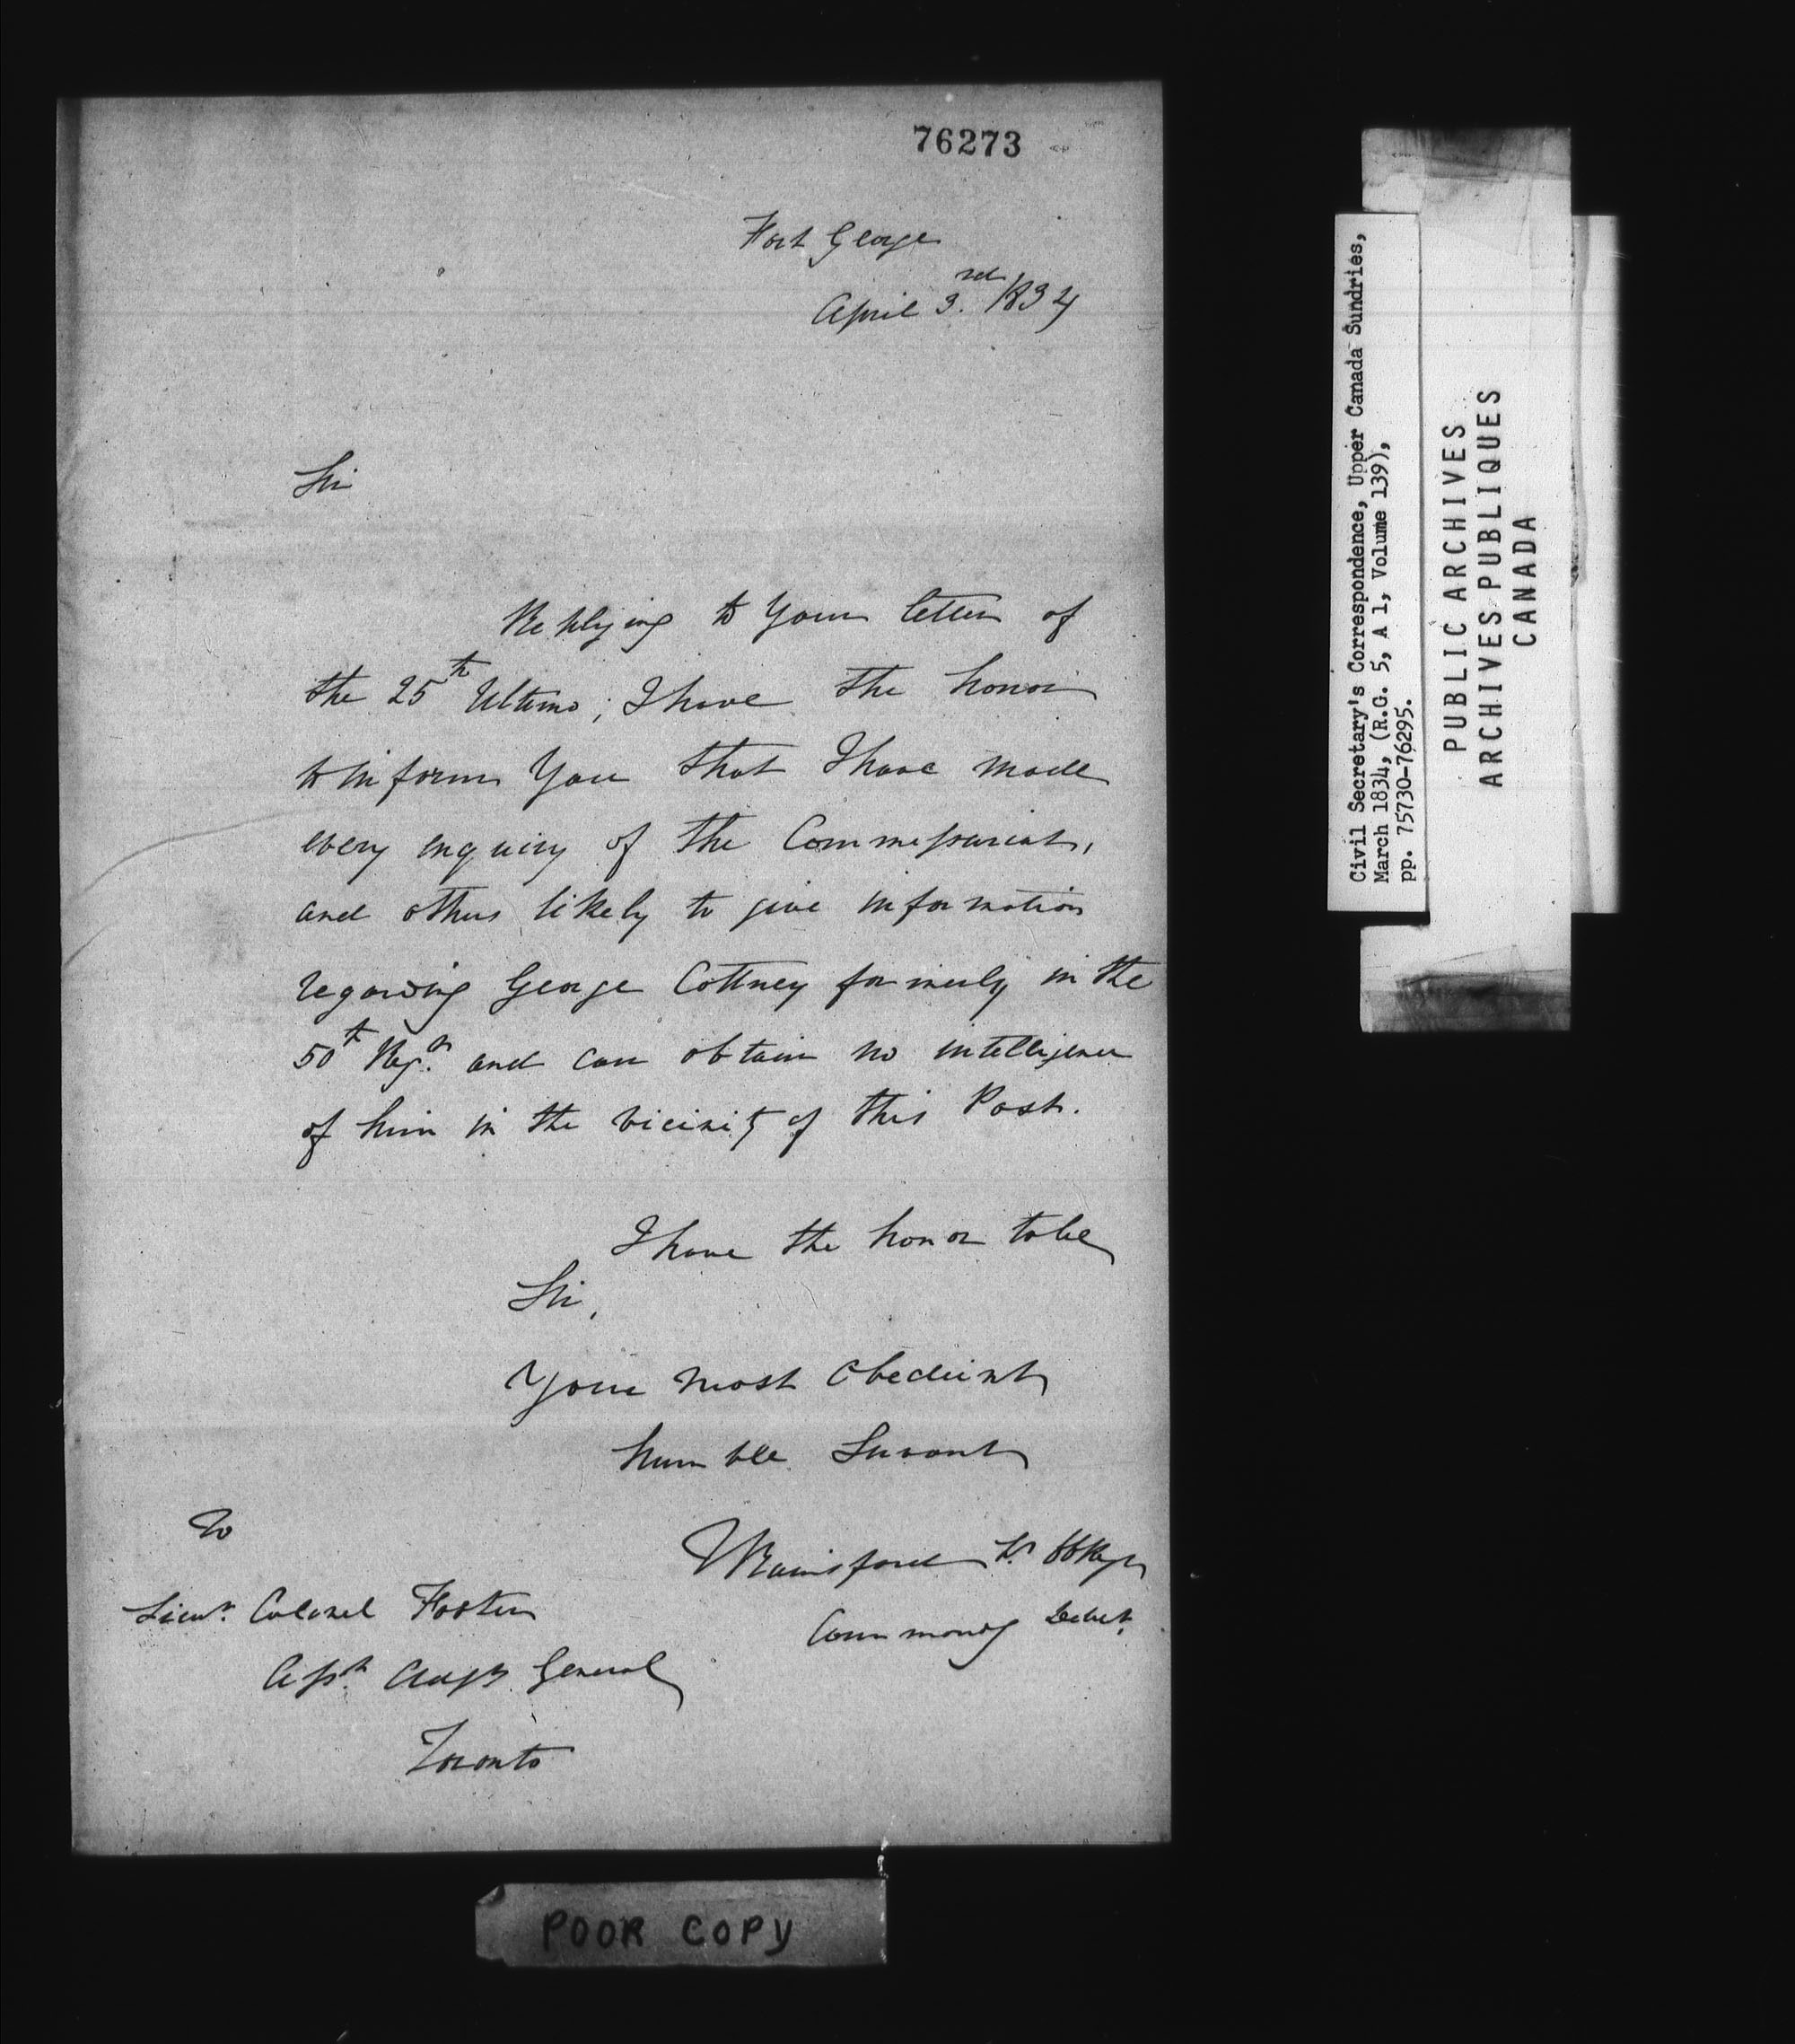 76273
Fort George
April 3.rd 1834
Sir
Replying to Your letter of
the 25th Ultimo; I have the honor
to inform You that I have made
every enquiry of the Commissariat,
and others likely to give information
regarding George Cottney formerly in the
50th Regt. and can obtain no intelligence
of him in the vicinity of this Post.
I have the honor to be
Sir,
Your most Obedient
humble Servant
Lt. 66 Regt
Commandg Detcht.
To
Lieut. Colonel Foster
Asst. Adjt. General
Toronto
POOR COPY
Civil Secretary's Correspondence, Upper Canada Sundries,
March 1834, (R.G. 5, A 1, Volume 139),
pp. 75730-76295.
PUBLIC ARCHIVES
ARCHIVES PUBLIQUES
CANADA